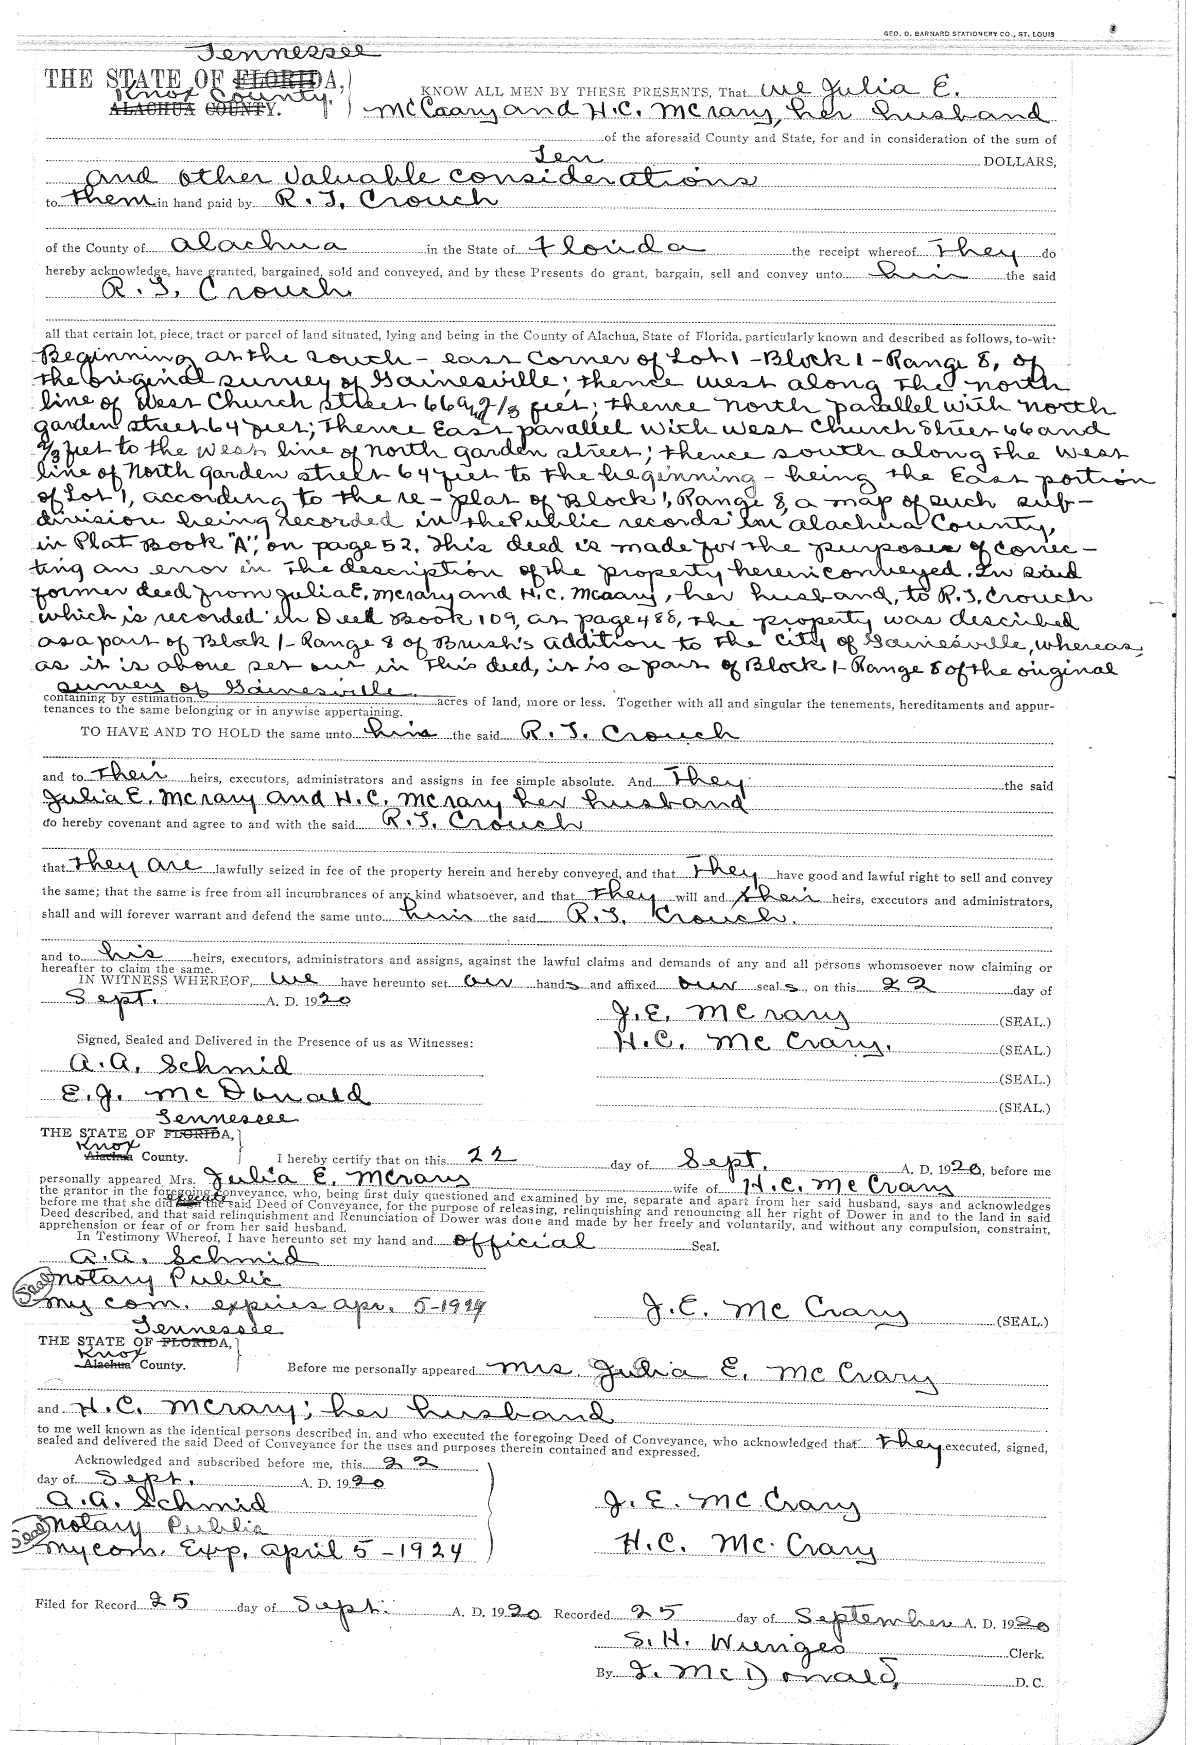 GEO. D. BARNARD STATIONERY CO., ST. LOUIS
Tennessee
THE STATE OF FLORIDA,
Knox County.
ALACHUA COUNTY.
KNOW ALL MEN BY THESE PRESENTS, That we Julia E.
McCrary and H.C. McCrary, her husband
of the aforesaid County and State, for and in consideration of the sum of
Ten DOLLARS,
and other valuable considerations
to them in hand paid by R. T. Crouch
of the County of Alachua in the State of Florida the receipt whereof They do
hereby acknowledge, have granted, bargained, sold and conveyed, and by these Presents do grant, bargain, sell and convey unto him the said
R. T. Crouch.
all that certain lot, piece, tract or parcel of land situated, lying and being in the County of Alachua, State of Florida, particularly known and described as follows, to-wit:
Beginning at the south-east corner of Lot 1-Block 1-Range 8, of
the original survey of Gainesville; thence west along the north
line of West Church street 66 & 2/3 feet; thence North parallel with North
garden street 64 feet; Thence East parallel with West Church Street 66 and
2/3 feet to the West line of North garden street; thence south along the west
line of North garden street 64 feet to the beginning-being the East portion
of Lot 1, according to the re-plat of Block 1, Range 8, a map of such sub-
division being recorded in the Public records in Alachua County,
in Plat Book "A", on page 52. This deed is made for the purposes of correc-
ting an error in the description of the property herein conveyed. In said
former deed from Julia E. McCrary and H.C. McCrary, her husband, to R.T. Crouch
which is recorded in Deed Book 109, at page 488, the property was described
as a part of Block 1-Range 8 of Brush's addition to the City of Gainesville, whereas,
as it is above set out in this deed, it is a part of Block 1-Range 8 of the original
survey of Gainesville.
containing by estimation acres of land, more or less. Together with all and singular the tenements, hereditaments and appur-
tenances to the same belonging or in anywise appertaining.
TO HAVE AND TO HOLD the same unto him the said R. T. Crouch
and to their heirs, executors, administrators and assigns in fee simple absolute. And They the said
Julia E. McCrary and H.C. McCrary her husband
do hereby covenant and agree to and with the said R.T. Crouch
that they are lawfully seized in fee of the property herein and hereby conveyed, and that They have good and lawful right to sell and convey
the same; that the same is free from all incumbrances of any kind whatsoever, and that they will and their heirs, executors and administrators,
shall and will forever warrant and defend the same unto him the said R.T. Crouch.
and to his heirs, executors, administrators and assigns, against the lawful claims and demands of any and all persons whomsoever now claiming or
hereafter to claim the same.
IN WITNESS WHEREOF, we have hereunto set our hands and affixed our seals, on this 22 day of
Sept. A. D. 1920
J.E. McCrary (SEAL.)
Signed, Sealed and Delivered in the Presence of us as Witnesses:
H.C. McCrary. (SEAL.)
A.A. Schmid
(SEAL.)
E.J. McDonald
(SEAL.)
Tennessee
THE STATE OF FLORIDA,
Knox
Alachua County.
I hereby certify that on this 22 day of Sept. A. D. 1920, before me
personally appeared Mrs. Julia E. McCrary wife of H.C. McCrary
the grantor in the foregoing conveyance, who, being first duly questioned and examined by me, separate and apart from her said husband, says and acknowledges
before me that she did the said Deed of Conveyance, for the purpose of releasing, relinquishing and renouncing all her right of Dower in and to the land in said
Deed described, and that said relinquishment and Renunciation of Dower was done and made by her freely and voluntarily, and without any compulsion, constraint,
apprehension or fear of or from her said husband.
In Testimony Whereof, I have hereunto set my hand and official Seal.
A.A. Schmid
Seal Notary Public
My com. expires Apr. 5-1924
J.E. McCrary (SEAL.)
Tennessee
THE STATE OF FLORIDA,
Knox
Alachua County.
Before me personally appeared Mrs. Julia E. McCrary
and H.C. McCrary; her husband
to me well known as the identical persons described in, and who executed the foregoing Deed of Conveyance, who acknowledged that they executed, signed,
sealed and delivered the said Deed of Conveyance for the uses and purposes therein contained and expressed.
Acknowledged and subscribed before me, this 22
day of Sept. A. D. 1920
A.A. Schmid
J.E. McCrary
Seal Notary Public
H.C. McCrary
My com. Exp. April 5-1924
Filed for Record 25 day of Sept. A. D. 1920 Recorded 25 day of September A. D. 1920
S.H. Wienges Clerk.
By I. McDonald, D. C.